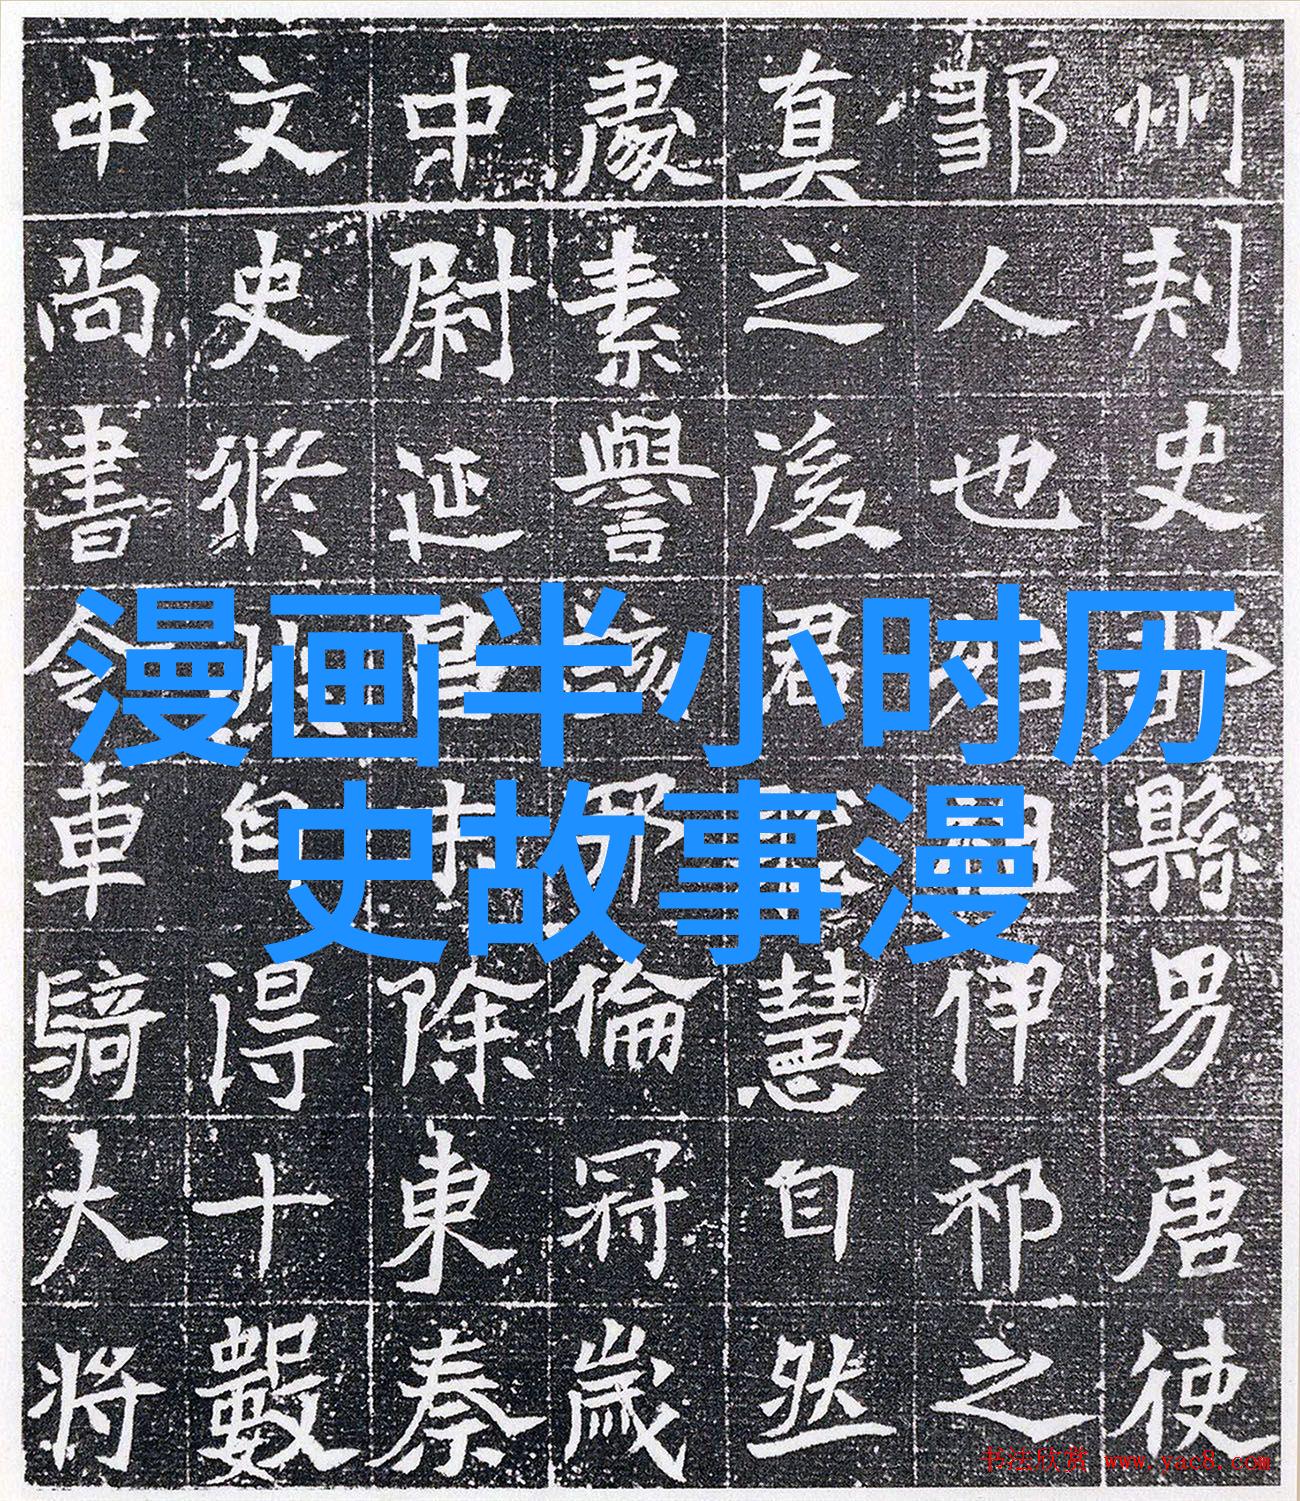 州刾史縣男唐使
鄒人也始祖伊祁之
真之後君慧自然
處素譽該倫冠歲
中尉延昌中除東秦
文史脩自得十數
中尚書令車騎大將
漫画半小时历
史故事漫
书法欣赏 www.yac8.com